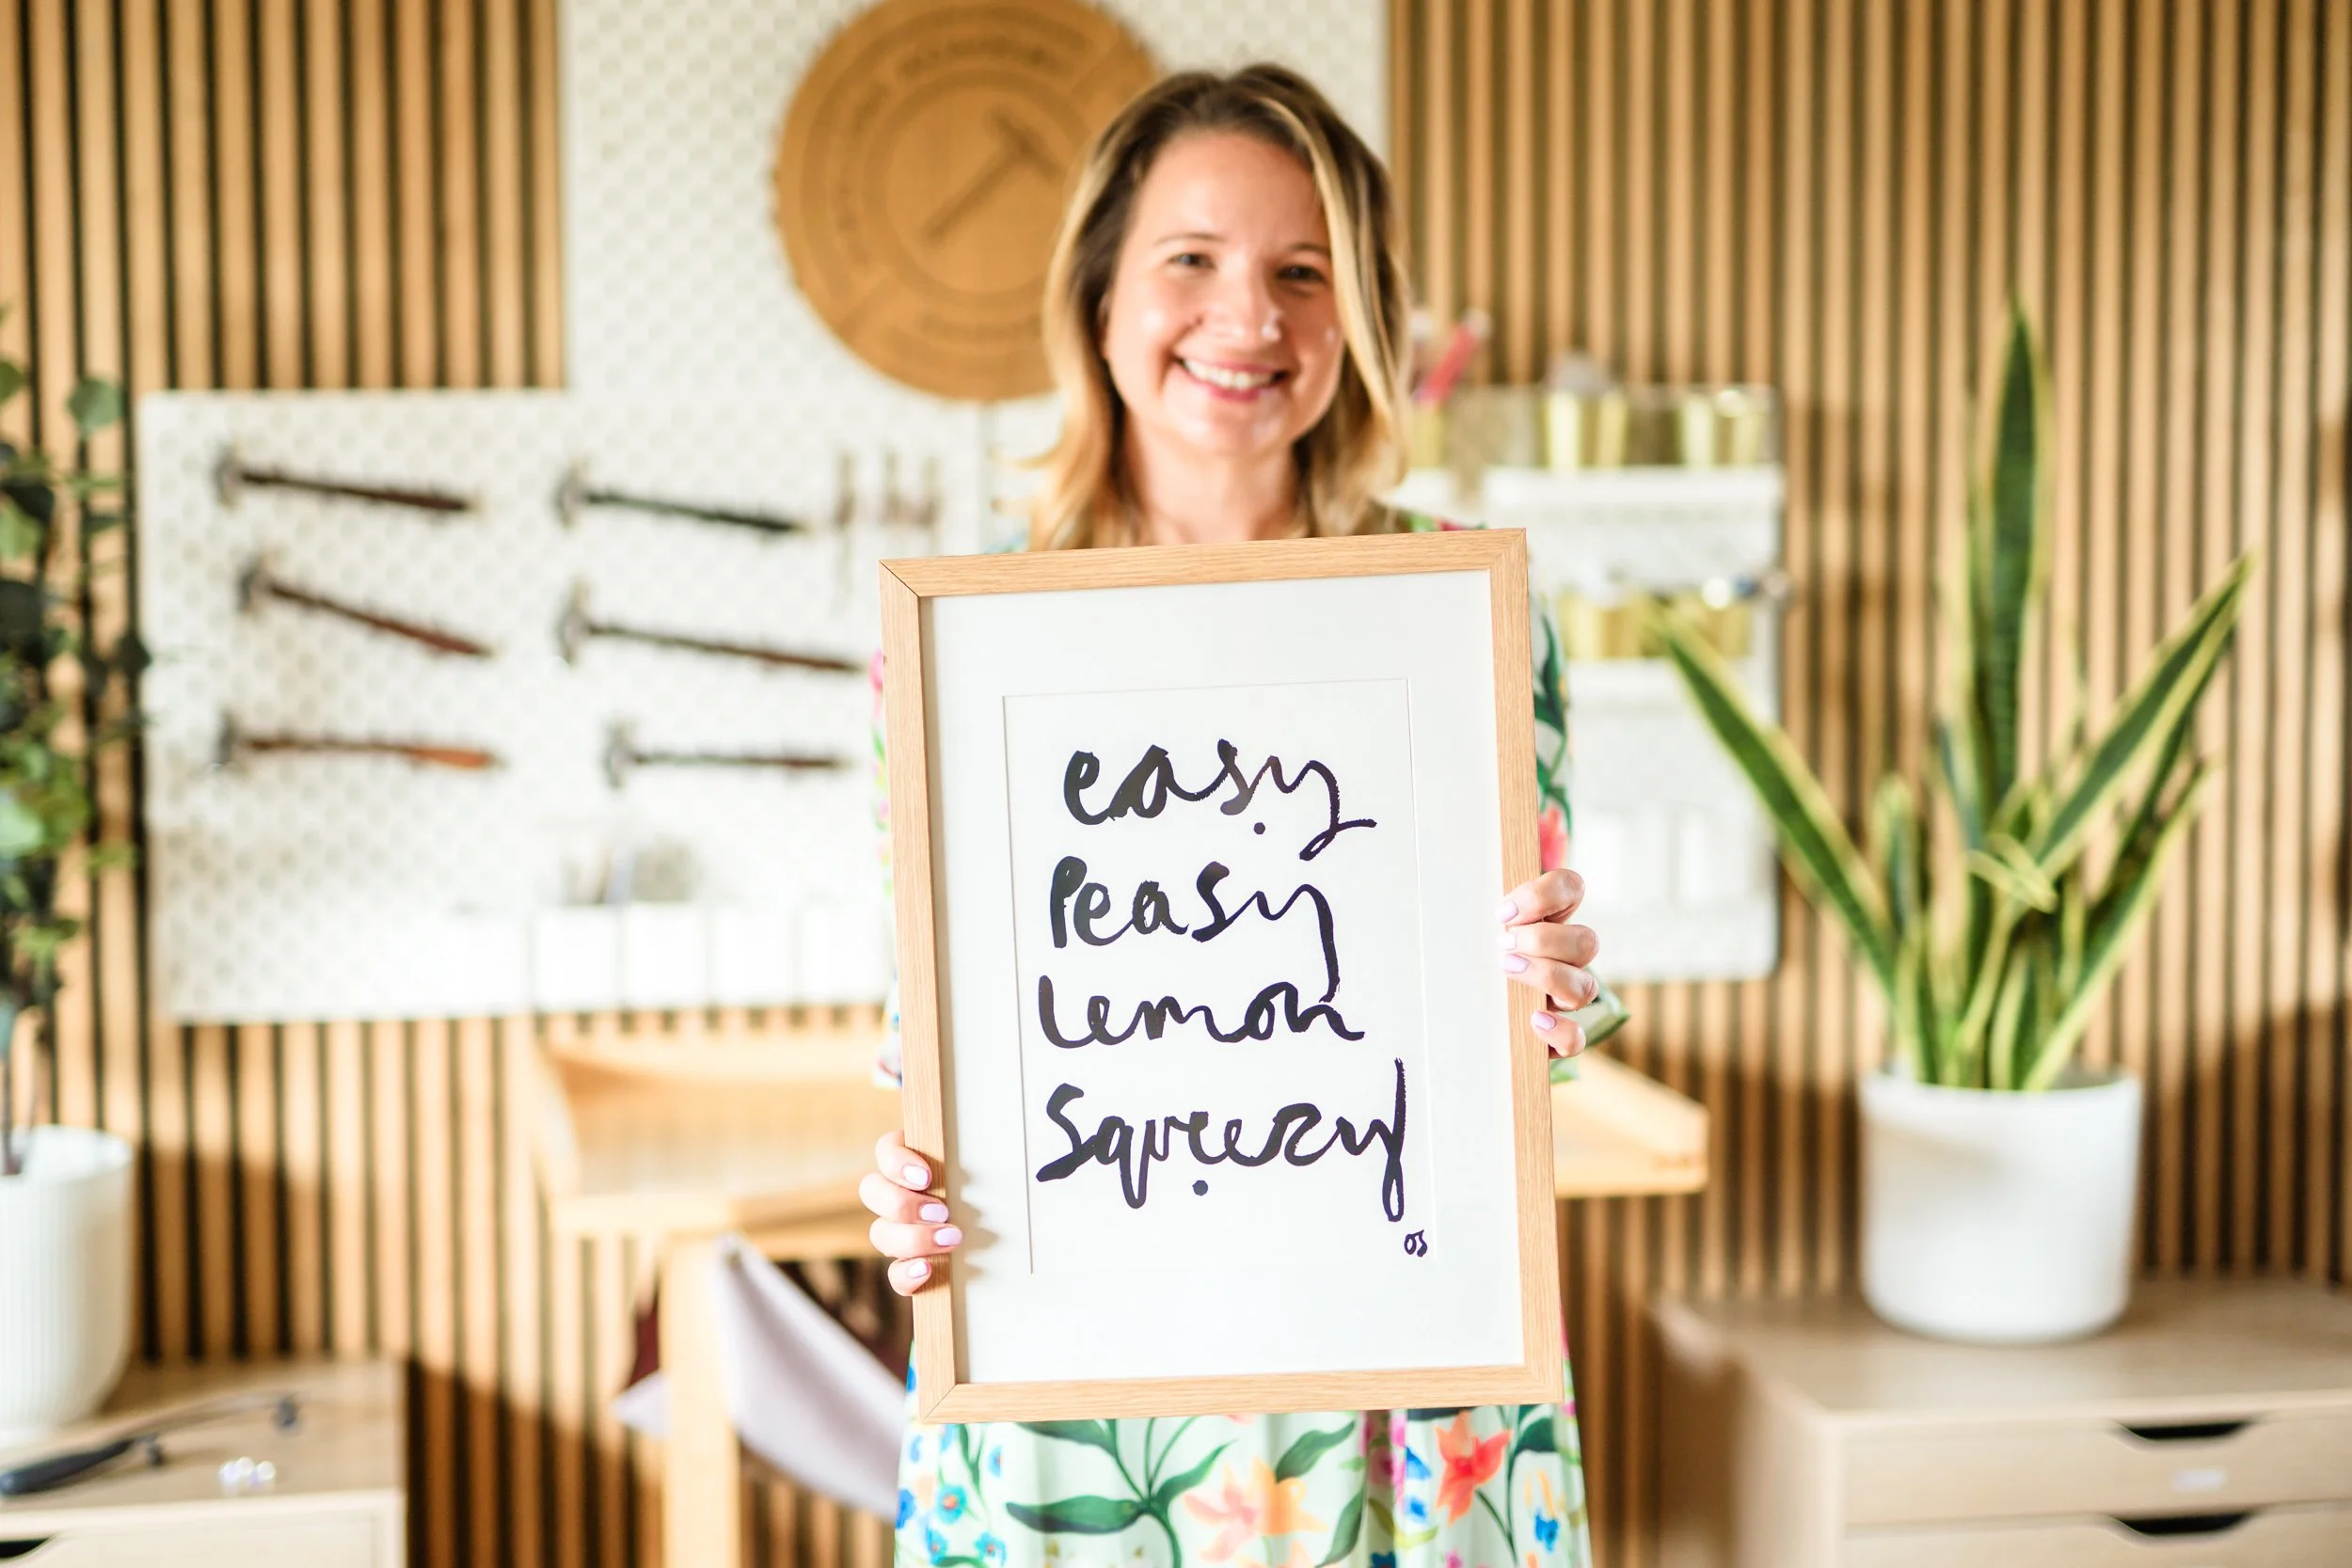 easy
Peasy
Lemon
Squeezy
OS